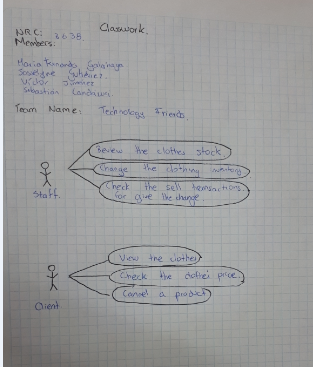 Classwork.
NRC: 3635
Members:
Maria Fernanda
Josselyne Gutiérrez
Victor Jiménez
Sebastián Landázuri
Team Name: Technology Friends
Review the clothes stock
Change the clothing inventory
Check the sell transactions
for give the change
Staff
View the clothes
Check the clothes price
Cancel a product
Client